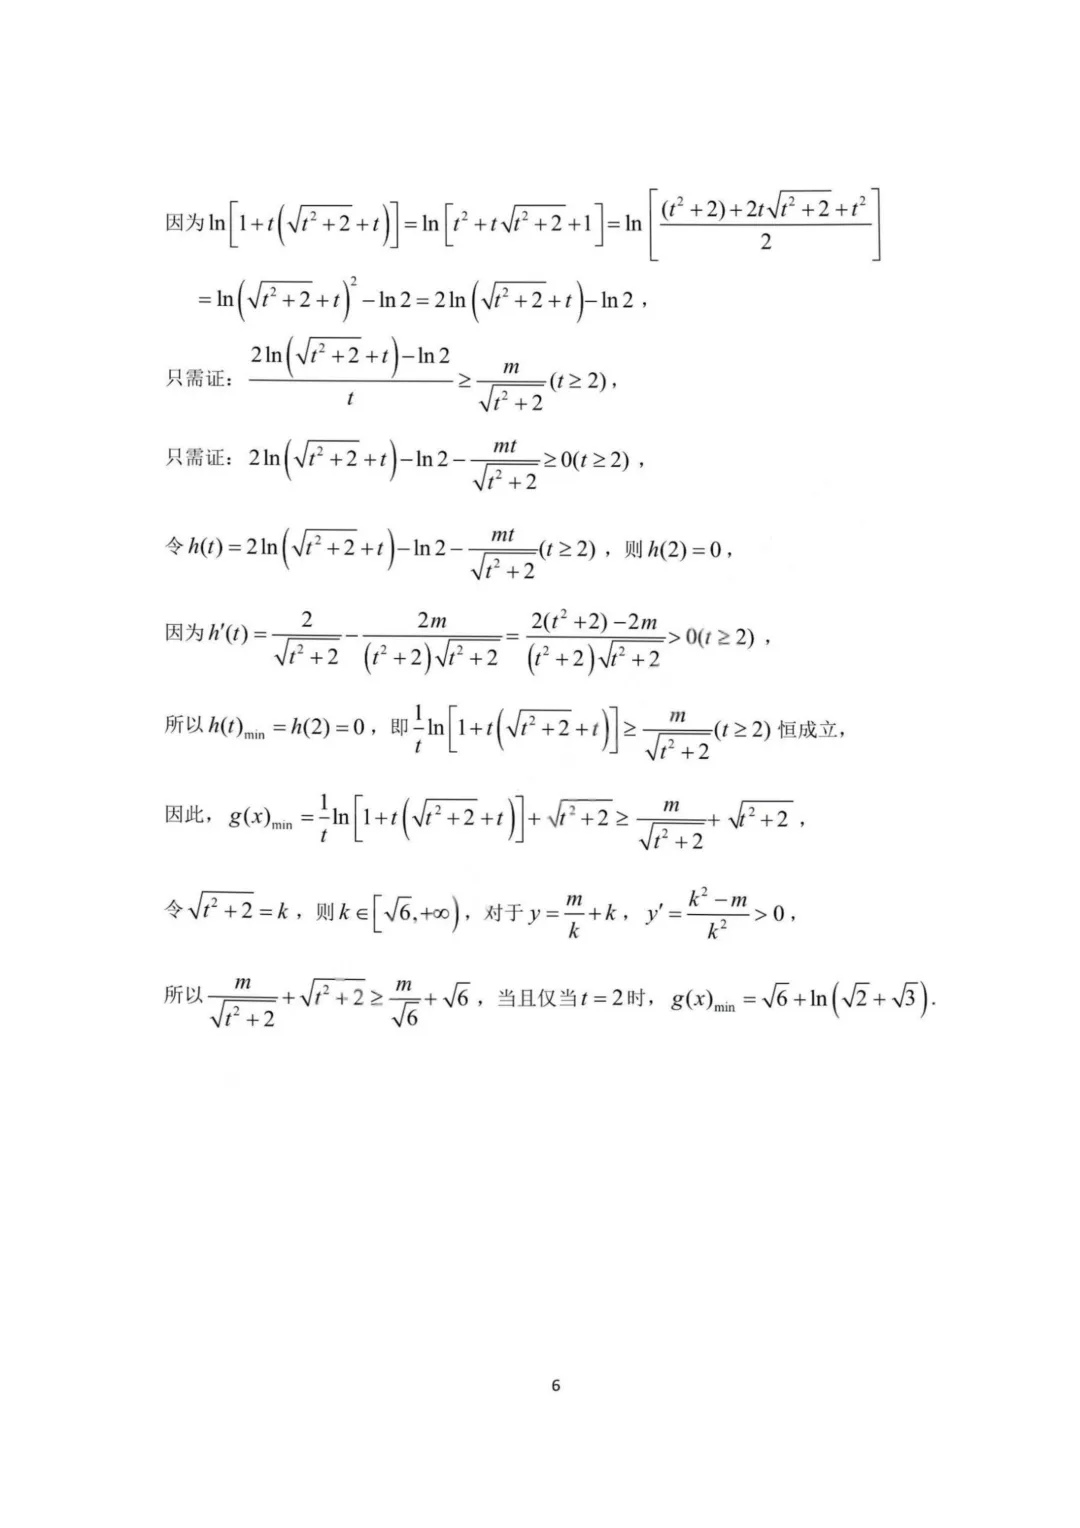 因为 $\ln\left[1+t\left(\sqrt{t^2+2}+t\right)\right]=\ln\left[t^2+t\sqrt{t^2+2}+1\right]=\ln\left[\frac{(t^2+2)+2t\sqrt{t^2+2}+t^2}{2}\right]$
$=\ln\left(\sqrt{t^2+2}+t\right)^2-\ln 2=2\ln\left(\sqrt{t^2+2}+t\right)-\ln 2$，
只需证：$\frac{2\ln\left(\sqrt{t^2+2}+t\right)-\ln 2}{t}\geq\frac{m}{\sqrt{t^2+2}}(t\geq 2)$，
只需证：$2\ln\left(\sqrt{t^2+2}+t\right)-\ln 2-\frac{mt}{\sqrt{t^2+2}}\geq 0(t\geq 2)$，
令 $h(t)=2\ln\left(\sqrt{t^2+2}+t\right)-\ln 2-\frac{mt}{\sqrt{t^2+2}}(t\geq 2)$，则 $h(2)=0$，
因为 $h'(t)=\frac{2}{\sqrt{t^2+2}}-\frac{2m}{(t^2+2)\sqrt{t^2+2}}=\frac{2(t^2+2)-2m}{(t^2+2)\sqrt{t^2+2}}>0(t\geq 2)$，
所以 $h(t)_{\min}=h(2)=0$，即 $\frac{1}{t}\ln\left[1+t\left(\sqrt{t^2+2}+t\right)\right]\geq\frac{m}{\sqrt{t^2+2}}(t\geq 2)$ 恒成立，
因此，$g(x)_{\min}=\frac{1}{t}\ln\left[1+t\left(\sqrt{t^2+2}+t\right)\right]+\sqrt{t^2+2}\geq\frac{m}{\sqrt{t^2+2}}+\sqrt{t^2+2}$，
令 $\sqrt{t^2+2}=k$，则 $k\in\left[\sqrt{6},+\infty\right)$，对于 $y=\frac{m}{k}+k$，$y'=\frac{k^2-m}{k^2}>0$，
所以 $\frac{m}{\sqrt{t^2+2}}+\sqrt{t^2+2}\geq\frac{m}{\sqrt{6}}+\sqrt{6}$，当且仅当 $t=2$ 时，$g(x)_{\min}=\sqrt{6}+\ln\left(\sqrt{2}+\sqrt{3}\right)$.
6